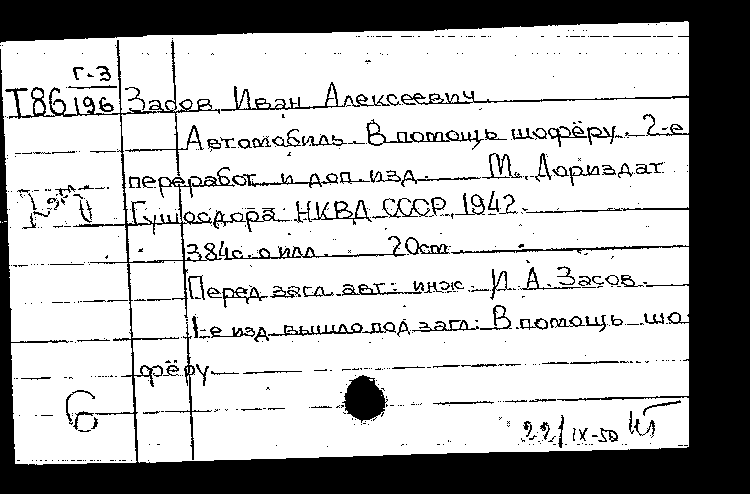 Г-3
Т86 196 Засов, Иван Алексеевич.
Автомобиль. В помощь шофёру. 2-е
переработ. и доп. изд. М., Дориздат
Гушосдора НКВД СССР, 1942.
384с. с илл. 20см.
Перед загл. авт.: инж. И. А. Засов.
1-е изд. вышло под загл.: В помощь шо
фёру.
6
22/IX-50